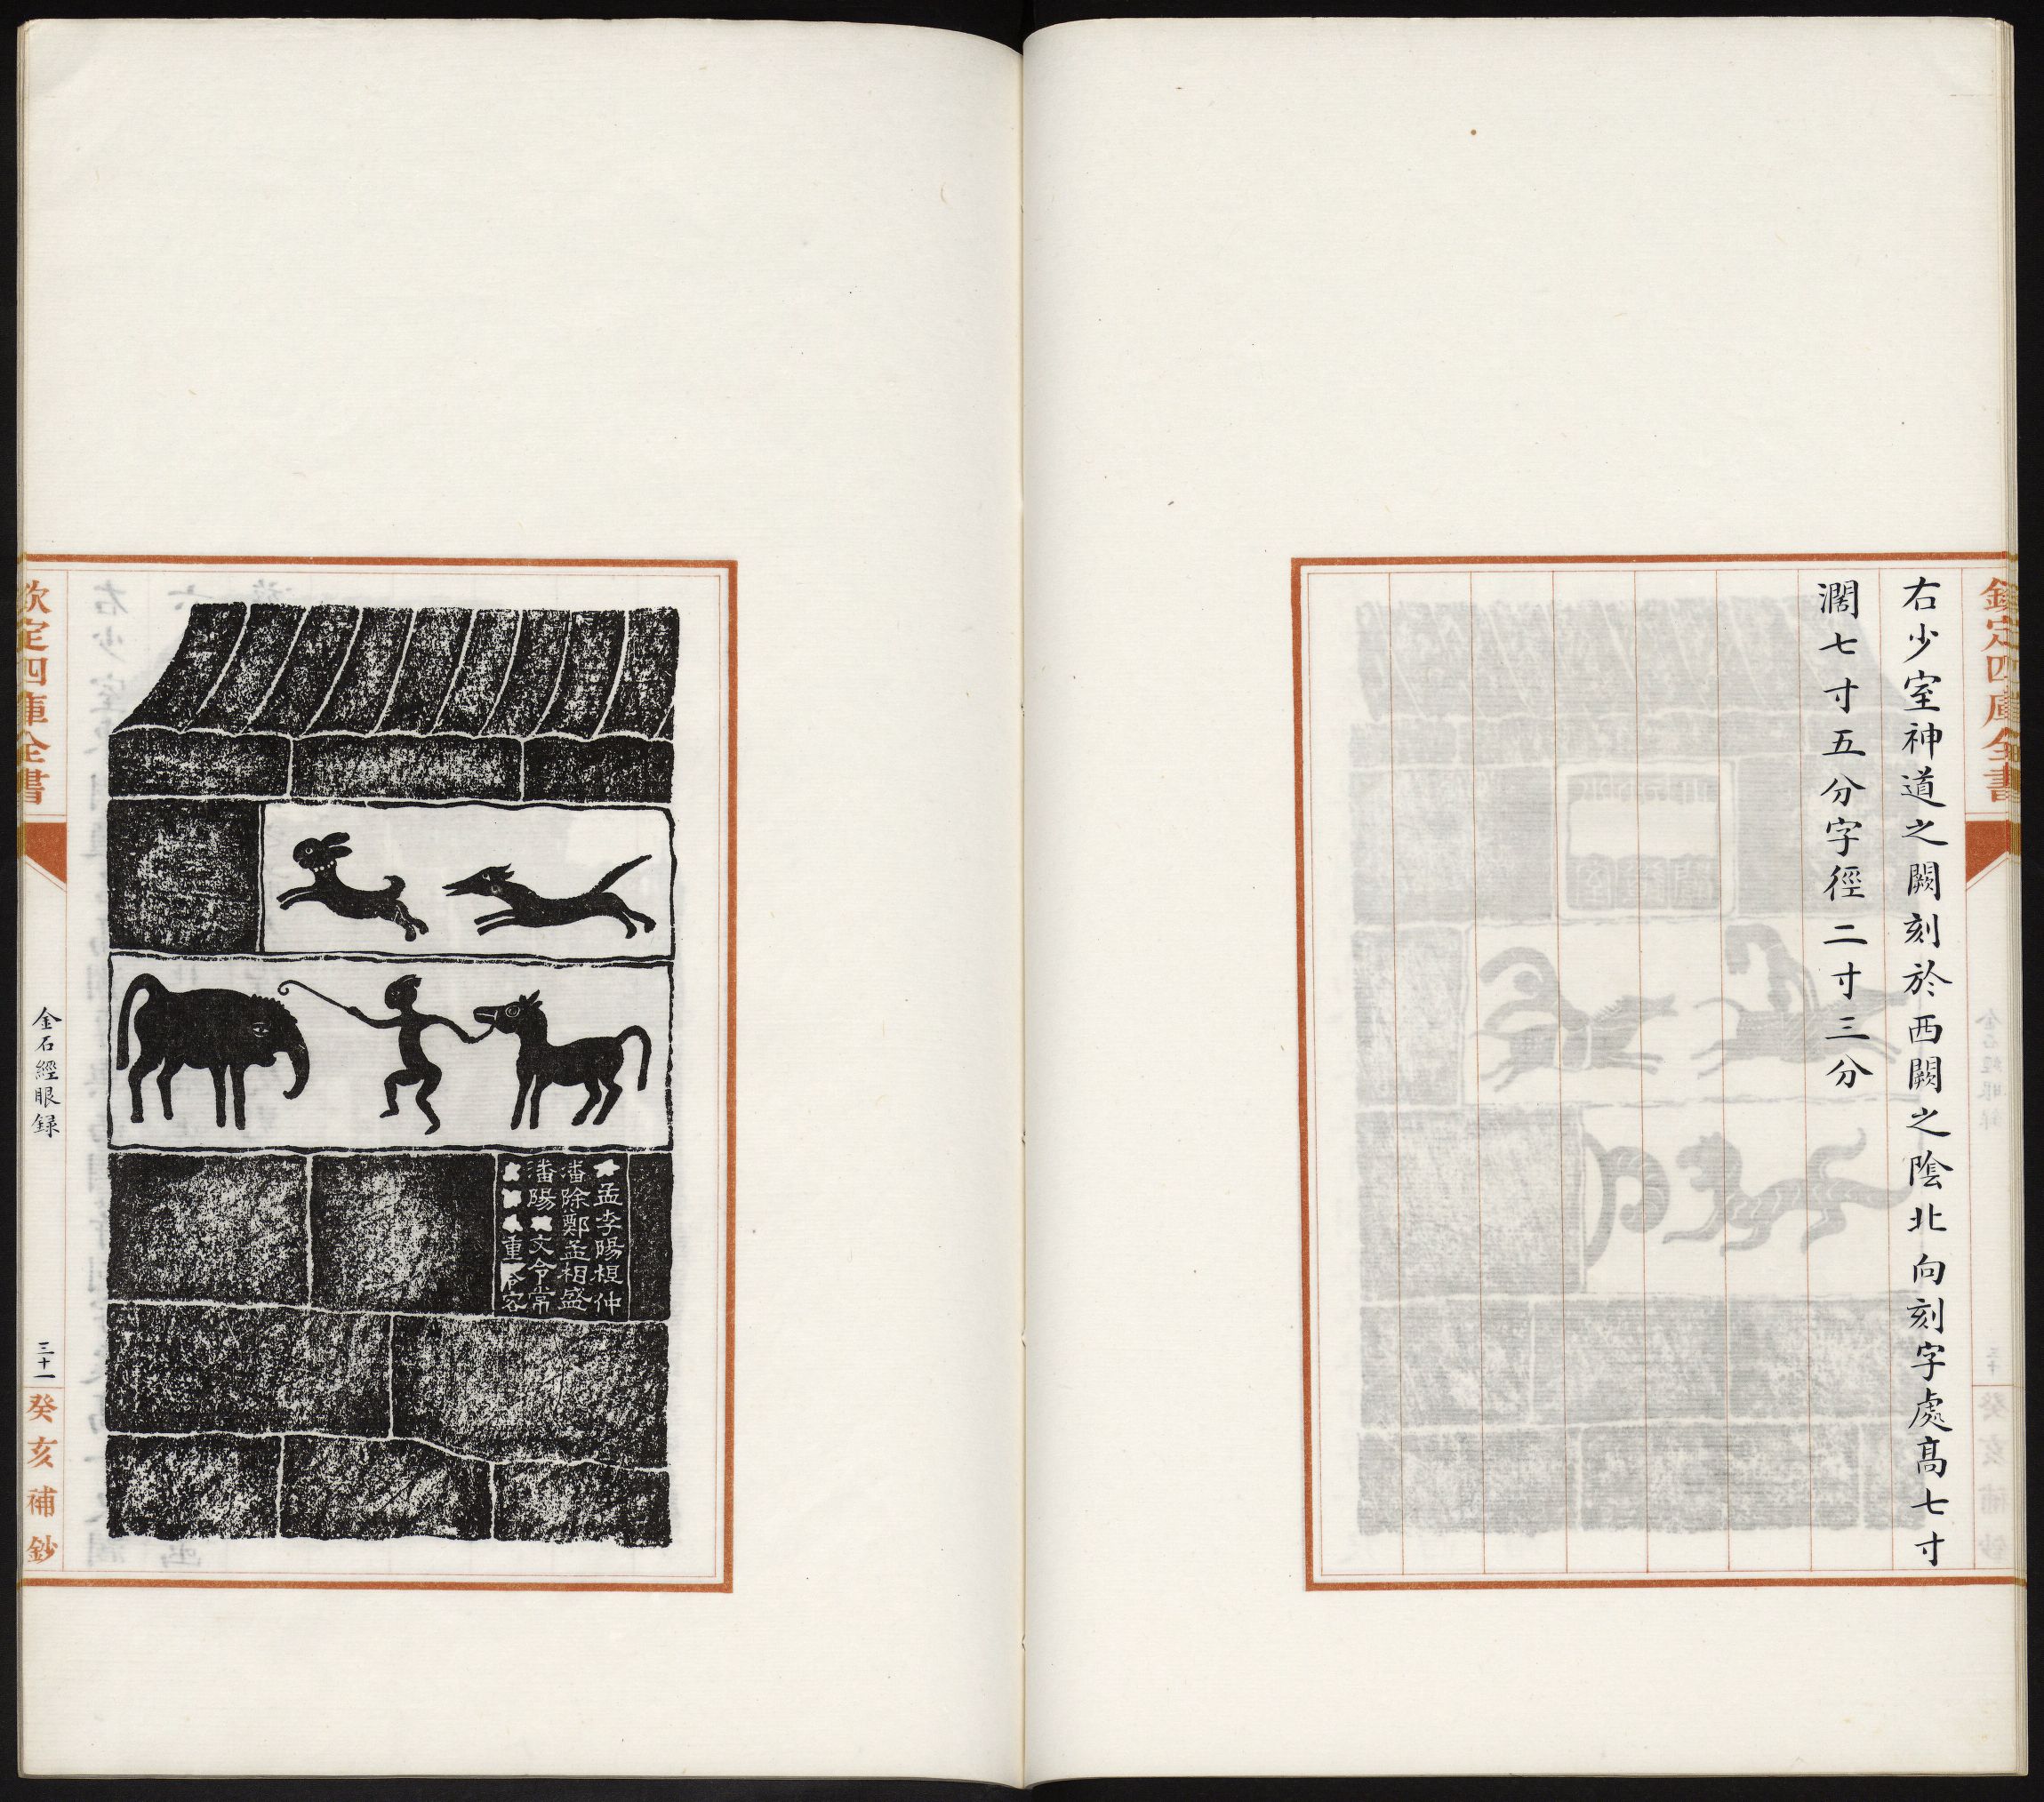 欽定四庫全書
右少室神道之闕刻於西闕之陰北向刻字處髙七寸
濶七寸五分字徑二寸三分
孟李陽根仲
潘除鄭孟相盛
潘陽文令常
重令容
欽定四庫全書
金石經眼録
三十一
癸亥補鈔